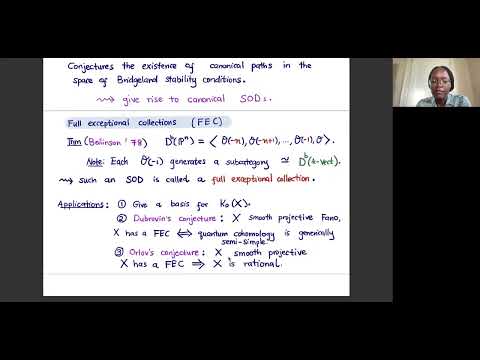 Conjectures the existence of canonical paths in the
space of Bridgeland stability conditions.
⇝ give rise to canonical SODs.
Full exceptional collections (FEC)
Thm (Beilinson '78) Dᵇ(ℙⁿ) = ⟨ O(-n), O(-n+1), ..., O(-1), O ⟩.
Note: Each O(-i) generates a subcategory ≃ Dᵇ(k-vect).
⇝ such an SOD is called a full exceptional collection.
Applications: ① Give a basis for K₀(X).
② Dubrovin's conjecture: X smooth projective Fano,
X has a FEC ⟺ quantum cohomology is generically
semi-simple.
③ Orlov's conjecture: X smooth projective
X has a FEC ⟹ X is rational.